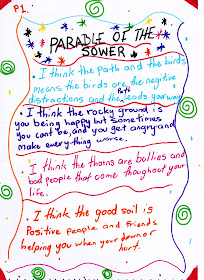 P1.
PARABLE OF THE
SOWER
• I think the path and the birds
means the birds are the negitive
distractions and the Path leads your way.
• I think the rocky ground is
you being happy but sometimes
you cant be, and you get angry and
make everything worse.
• I think the thorns are bullies and
bad people that come thoughout your
life.
• I think the good soil is
Positive people and friends
helping you when your down or
hurt.